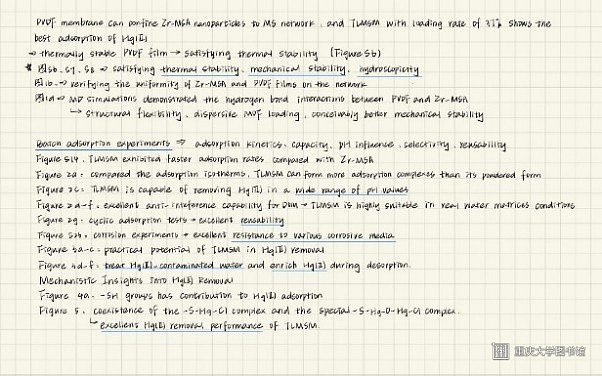 PVDF membrane can confine Zr-MSA nanoparticles to MS network, and TLMSM with loading rate of 33% shows the
best adsorption of Hg(II)
→ thermally stable PVDF film → satisfying thermal stability (Figure 5b)
* 图5b, S7, S8 → satisfying thermal stability, mechanical stability, hydroscopicity
图1b → verifying the uniformity of Zr-MSA and PVDF films on the network
图1d → MD simulations demonstrated the hydrogen bond interactions between PVDF and Zr-MSA
↳ structural flexibility, dispersive MOF loading, conceivably better mechanical stability
Batch adsorption experiments → adsorption kinetics, capacity, pH influence, selectivity, reusability
Figure S14. TLMSM exhibited faster adsorption rates compared with Zr-MSA
Figure 2a: compared the adsorption isotherms, TLMSM can form more adsorption complexes than its powdered form
Figure 2c: TLMSM is capable of removing Hg(II) in a wide range of pH values
Figure 2d-f: excellent anti-inteference capability for DOM → TLMSM is highly suitable in real water matrices conditions
Figure 2g: cyclic adsorption tests → excellent reusability
Figure corrosion experiments → excellent resistance to various corrosive media
Figure 3a-c: practical potential of TLMSM in Hg(II) removal
Figure 3d-f: treat Hg(II)-contaminated water and enrich Hg(II) during desorption.
Mechanistic Insights Into Hg(II) Removal
Figure 4a: -SH groups has contribution to Hg(II) adsorption
Figure 5. coexistance of the -S-Hg-Cl complex and the special -S-Hg-O-Hg-Cl complex.
↳ excellent Hg(II) removal performance of TLMSM.
重庆大学图书馆